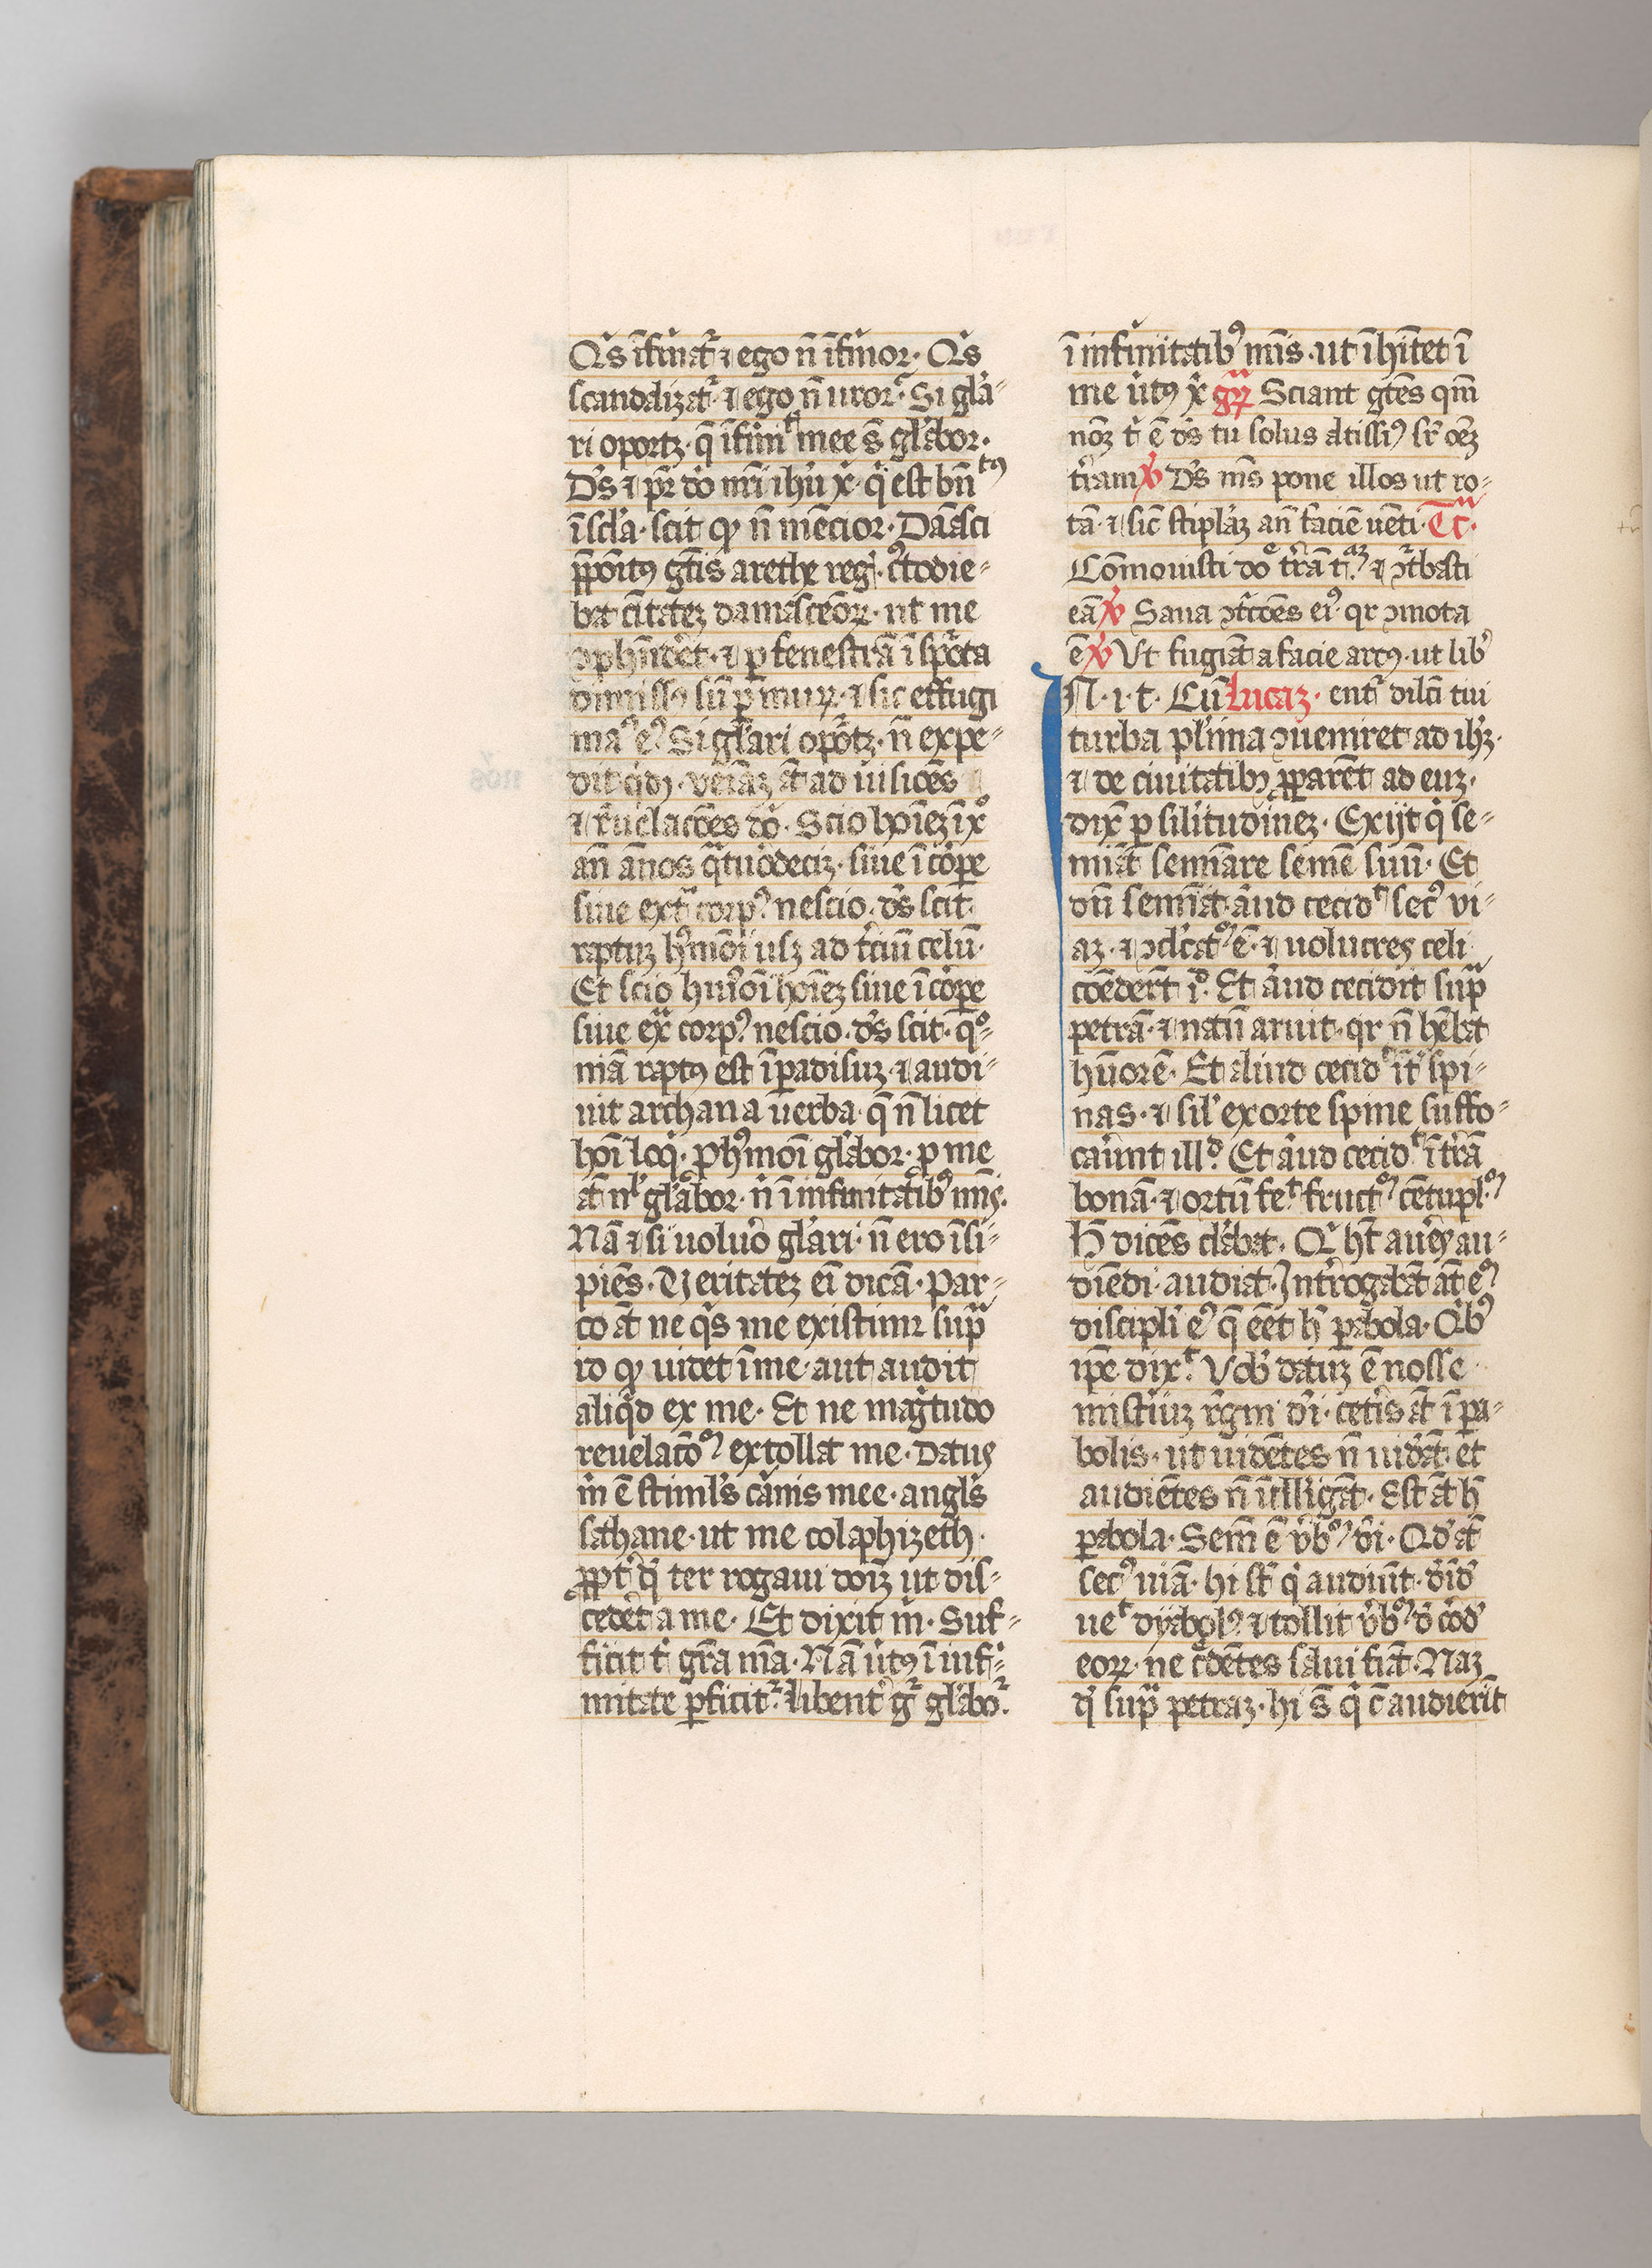 Q̓s īfirmat᷑ ⁊ ego n̄ īfirmor. Q̓s
scandalizat᷑ ⁊ ego n̄ uror. Si gl̓a-
ri oportꝫ. q̄ īfirmit mee s̄ gl̓abor.
D̓s ⁊ pr̄ dn̄i nr̄i ih̓u x̓ q̓ est bn̄ tꝰ
ī scl̓a. scit ꝙ n̄ mēcior. Damasci
p̄poītꝰ gētis arethe reg̓. c̓todie-
bat ciuitateꝫ damascēoꝝ. ut me
ꝯp̄hēderet. ⁊ p fenestrā ī sporta
dimissꝰ sū p muꝝ. ⁊ sic effugi
manꝰ eꝰ. Si gl̓ari oportꝫ. n̄ expe-
dit qͥdꝫ. veniaꝫ āt ad uisiōes
⁊ reuelacōes dn̄i. Scio hoīeꝫ ī xº
an̄ ānos q̄tuordeciꝫ. siue ī corpe
siue extᵃ corpꝰ nescio. d̓s scit.
raptuꝫ hꝰmōi usqꝫ ad t̓ciū celū.
Et scio huiꝰmōi hoīeꝫ siue ī corpe
siue exᵃ corpꝰ nescio. d̓s scit. qº-
niā raptꝰ est ī padisuꝫ. ⁊ audi-
uit archana uerba. q̄ n̄ licet
hoī loq̓. p hꝰmōi gl̓abor. p me
āt nl̓ gl̓abor. n̓ ī infirmitatibꝰ m̄is.
Nā ⁊ si uoluero gl̓ari. n̄ ero īsi-
piēs. Ueritateꝫ ei̅ dicā. Par-
co āt ne q̓s me existimet supᵃ
id ꝙ uidet ī me. aut audit
aliq̓d ex me. Et ne mag̓tudo
reuelacōꝝ extollat me. datꝰ
m̓ ē stiml̓s carnis mee. angl̓s
sathane. ut me colaphizeth.
ꝓpt̓ qd̓ ter rogaui dominū ut dis-
cederet a me. Et dixit m̓. Suf-
ficit t̓ gr̄a mea. Nā ūtꝰ ī infir-
mitate pficit᷑. libent̓ g̓ gl̓abor.
ī infirmitatibꝰ meis. ut īhītet ī
me ūtꝰ x̓ gr̄ Sciant gētes qm̄
nomē t̓ ē d̓s tu solus altissimꝰ sr̄ oēꝫ
t̓ram ꝟ D̓s m̄s pone illos ut ro-
tā. ⁊ sic̄ stipl̓aꝫ an̄ faciē uēti. Tr̄.
Cōmouisti dn̄e t̓rā ⁊ ꝯt̓basti
eā ꝟ Sana ꝯt̓cōes eiꝰ. qr ꝯmota
ē ꝟ Ut fugiāt a facie arcꝰ. ut lib̓
N. i. t. Cū Lucaꝫ. ent̓ dilc̄i tui
turba pl̓ima ꝯueniret ad ih̓ꝫ.
⁊ de ciuitatibꝰ ꝓparēt ad euꝫ.
dix̄ p sil̓itudineꝫ. Exijt q̓ se-
miāt semīare semē suū. Et
dū semīat. aliud cecid̓t secꝰ vi-
aꝫ. ⁊ ꝯculcatū ē. ⁊ uolucres celi
comedert̄ id. Et aliud cecidit supᵃ
petrā. ⁊ natū aruit. qr n̄ hēbat
hūorē. Et aliud cecidᵗ īt̓ spi-
nas. ⁊ sil̓ exorte spine suffo-
cauerūt ill̓d. Et aliud cecidᵗ ī t̓rā
bonā. ⁊ ortū feᵗ fructū cētuplū
H̄ dicēs cl̓abat. Q̓ h̄t aures au-
diēdi. audiat. Int̓rogabāt āt eū
discipli̓ eꝰ q̄ eēt h̄ pabola. Qͥbꝰ
ip̄e dixᵗ. Vob̓ datuꝫ ē nosse
mist̓iuꝫ r̓gni d̓i. cet̓is āt ī pa-
bolis. ut uidētes n̄ uidāt. et
audiētes n̄ ītelligāt. Est āt h̄
pabola. Sem̄ ē ūbū d̓i. Qd̓ āt
secꝰ uiā. hi st̄ q̓ audiūt. d̓īd̓
ueᵗ dyabolꝰ ⁊ tollit ūbū d̓ cord̓
eoꝝ. ne cᵉdētes salui fiāt. Naꝫ
q̓ supᵃ petraꝫ. hi s̄ q̓ cū audierit̄